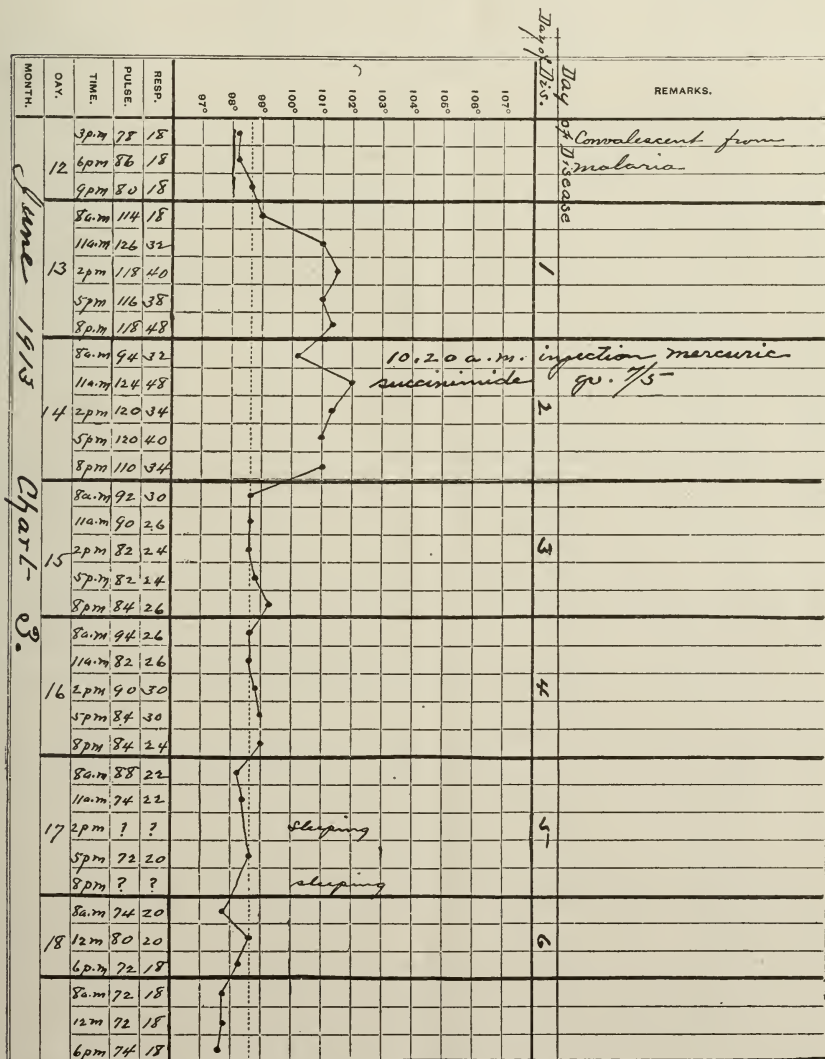 MONTH. DAY. TIME. PULSE. RESP. 97° 98° 99° 100° 101° 102° 103° 104° 105° 106° 107° Day of Dis. REMARKS.
Day of Disease
June 1913 Chart 3.
12 3p.m 78 18 Convalescent from
6pm 86 18 malaria
9pm 80 18
8a.m 114 18
11a.m 126 32
13 2pm 118 40 1
5pm 116 38
8p.m 118 48
8a.m 94 32 10.20 a.m. injection mercuric
11a.m 124 48 succinimide gr. 7/5
14 2pm 120 34 2
5pm 120 40
8pm 110 34
8a.m 92 30
11a.m 90 26
15 2pm 82 24 3
5p.m 82 24
8pm 84 26
8a.m 94 26
11a.m 82 26
16 2pm 90 30 4
5pm 84 30
8pm 84 24
8a.m 88 22
11a.m 74 22
17 2pm ? ? sleeping 5
5pm 72 20
8pm ? ? sleeping
8a.m 74 20
18 12m 80 20 6
6p.m 72 18
8a.m 72 18
12m 72 18
6pm 74 18